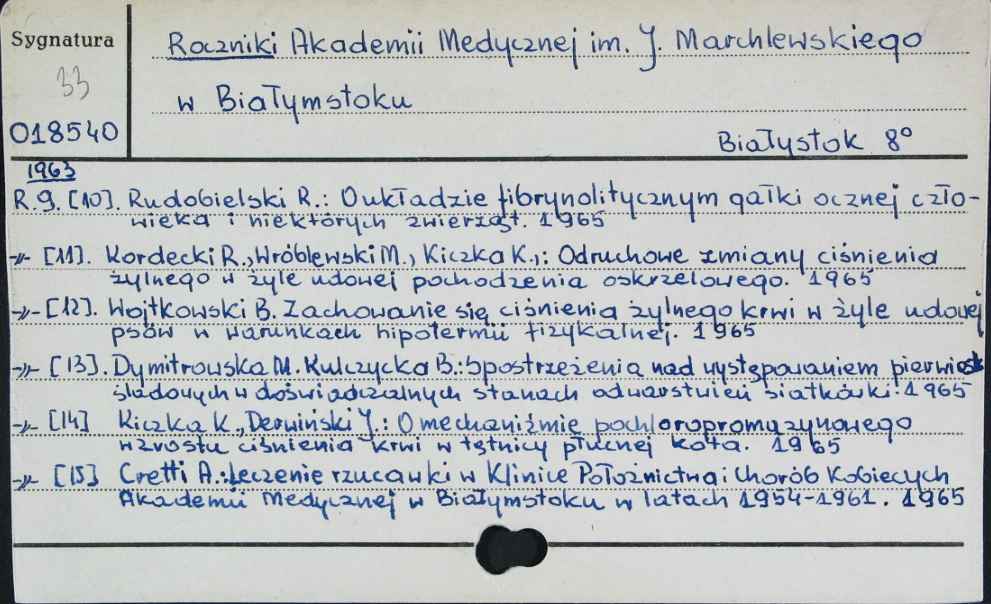 Sygnatura
33
018540
Roczniki Akademii Medycznej im. J. Marchlewskiego
w Białymstoku
Białystok 8°
1963
R. 9. [10]. Rudobielski R.: O układzie fibrynolitycznym gałki ocznej czło-
wieka i niektórych zwierząt. 1965
-"- [11]. Kordecki R., Wróblewski M., Kiczka K.,: Odruchowe zmiany ciśnienia
żylnego w żyle udowej pochodzenia oskrzelowego. 1965
-"- [12]. Wojtkowski B. Zachowanie się ciśnienia żylnego krwi w żyle udowej
psów w warunkach hipotermii fizykalnej. 1965
-"- [13]. Dymitrowska M. Kulczycka B.: Spostrzeżenia nad występowaniem pierwiost
śladowych w doświadczalnych stanach odwarstwień siatkówki. 1965
-"- [14] Kiczka K., Derwiński J.: O mechaniźmie pochloropromazynowego
wzrostu ciśnienia krwi w tętnicy płucnej kota. 1965
-"- [15] Cretti A.: Leczenie rzucawki w Klinice Położnictwa i Chorób Kobiecych
Akademii Medycznej w Białymstoku w latach 1954-1961. 1965